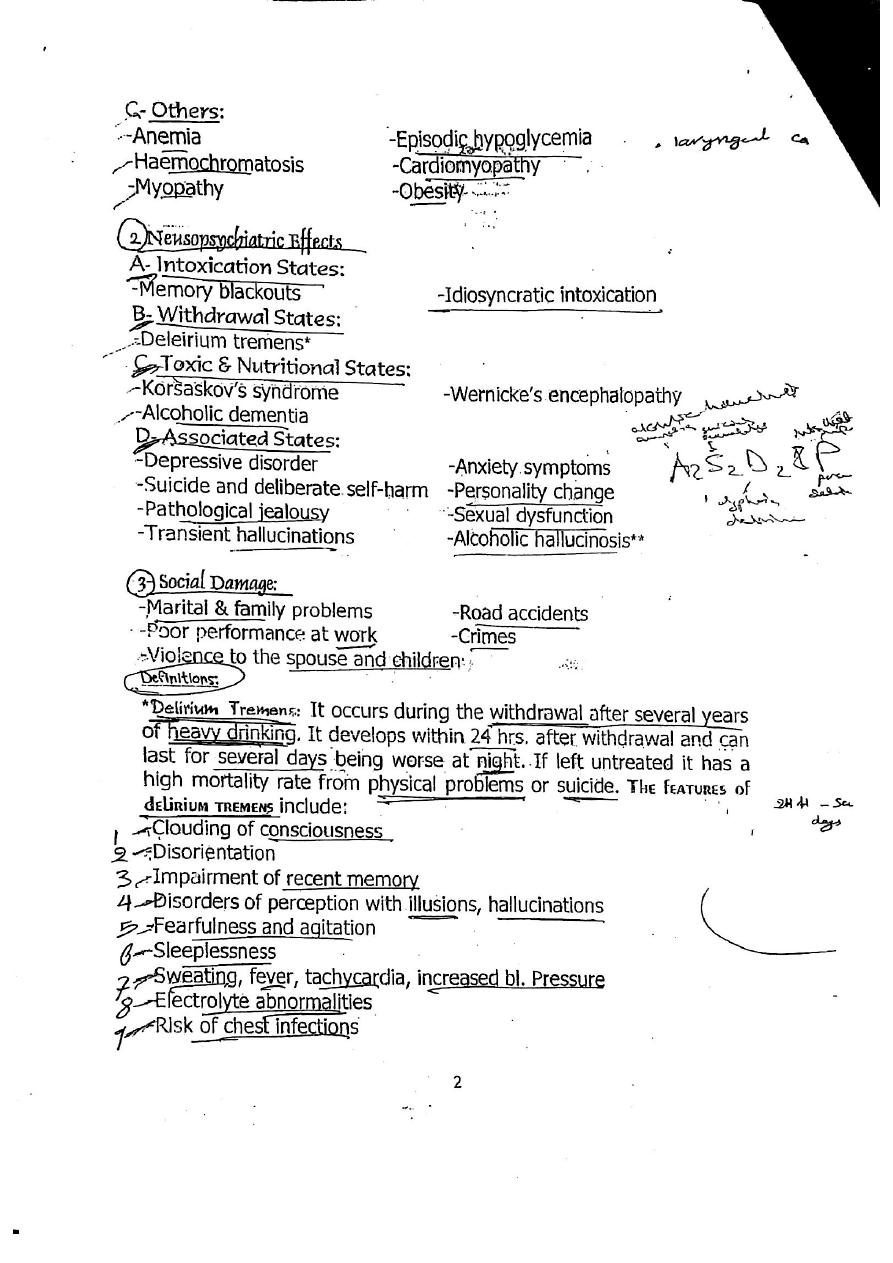 C- Others:
-Anemia -Episodic hypoglycemia . laryngeal ca
-Haemochromatosis -Cardiomyopathy
-Myopathy -Obesity
2) Neusopsychiatric Effects
A- Intoxication States:
-Memory blackouts -Idiosyncratic intoxication
B- Withdrawal States:
-Deleirium tremens*
C- Toxic & Nutritional States:
-Korsaskov's syndrome -Wernicke's encephalopathy
-Alcoholic dementia
D- Associated States:
-Depressive disorder -Anxiety symptoms
-Suicide and deliberate self-harm -Personality change
-Pathological jealousy -Sexual dysfunction
-Transient hallucinations -Alcoholic hallucinosis**
3) Social Damage:
-Marital & family problems -Road accidents
-Poor performance at work -Crimes
-Violence to the spouse and children
Definitions:
*Delirium Tremens: It occurs during the withdrawal after several years
of heavy drinking. It develops within 24 hrs. after withdrawal and can
last for several days being worse at night. If left untreated it has a
high mortality rate from physical problems or suicide. THE FEATURES of
dELIRIUM TREMENS include:
1 -Clouding of consciousness
2 -Disorientation
3 -Impairment of recent memory
4 -Disorders of perception with illusions, hallucinations
5 -Fearfulness and agitation
6 -Sleeplessness
7 -Sweating, fever, tachycardia, increased bl. Pressure
8 -Electrolyte abnormalities
9 -Risk of chest infections
days
2